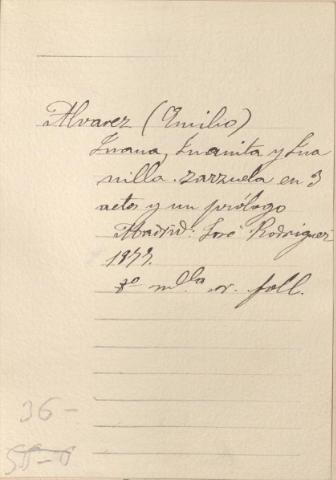 Alvarez (Emilio)
Juana, Juanita y Jua
nilla. zarzuela en 3
actos y un prólogo
Madrid: José Rodriguez
1877.
8º mlla or. foll.
36-